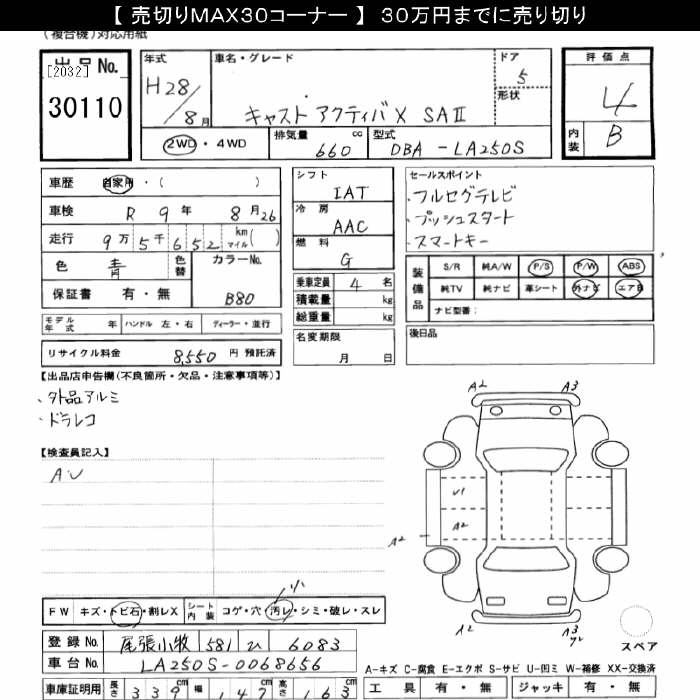 【 売切りMAX30コーナー 】 30万円までに売り切り
(複合機)対応用紙
出品No.
[2032]
30110
年式
H28/8月
車名・グレード
キャスト アクティバX SAⅡ
ドア
5
形状
評価点
4
内装 B
2WD・4WD
排気量 660 cc
型式 DBA -LA250S
車歴 自家用・( )
車検 R 9年 8月26
走行 9万5千652 km マイル( )
色 青 色替
カラーNo. B80
保証書 有・無
モデル年式 年 ハンドル 左・右 ディーラー・並行
リサイクル料金 8,550 円 預託済
シフト IAT
冷房 AAC
燃料 G
乗車定員 4 名
積載量 kg
総重量 kg
名変期限
月 日
セールスポイント
・フルセグテレビ
・プッシュスタート
・スマートキー
装備品 S/R 純A/W P/S P/W ABS
純TV 純ナビ 革シート 外ナビ エアB
ナビ型番:
後日品
【出品店申告欄(不良箇所・欠品・注意事項等)】
・外品アルミ
・ドラレコ
【検査員記入】
AU
A2 A3
U1
A2
A2
A2 A3
スペア
FW キズ・トビ石・割レX シート内装 コゲ・穴・汚レ・シミ・破レ・スレ
小
登録No. 尾張小牧 581 ひ 6083
車台No. LA250S-0068656
A-キズ C-腐食 E-エクボ S-サビ U-凹ミ W-補修 XX-交換済
車庫証明用 長さ 339cm 幅 147cm 高さ 163cm
工具 有・無 ジャッキ 有・無